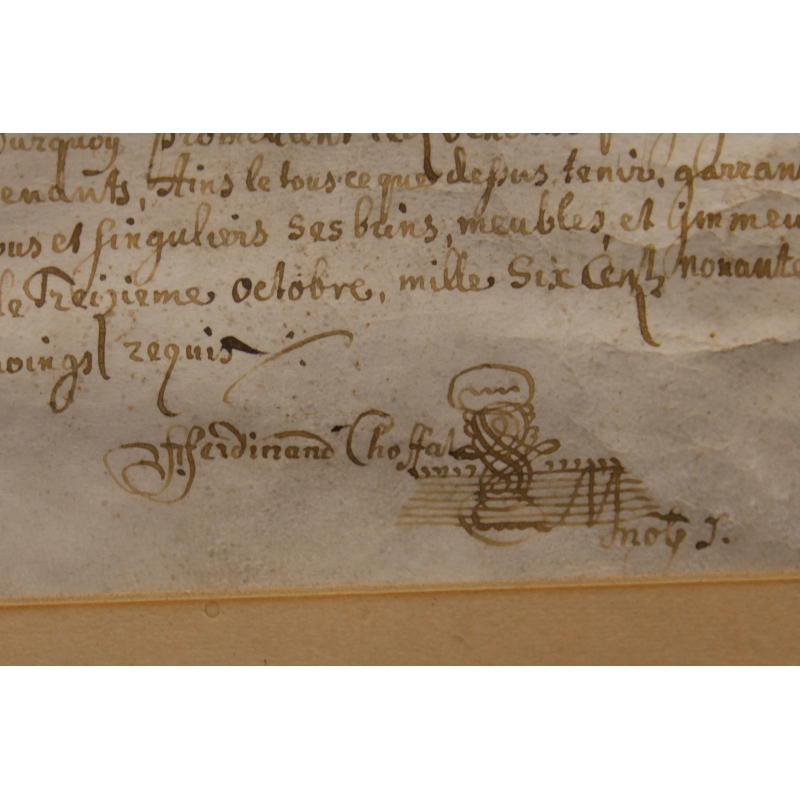 ourquoy promettant
enants, Ains le tous ce que dessus tenir, garran
ous et singuliers ses biens, meubles, et immeu
le Treizieme octobre, mille Six Cent nonante
moings requis
JFferdinand Choffat
not. J.